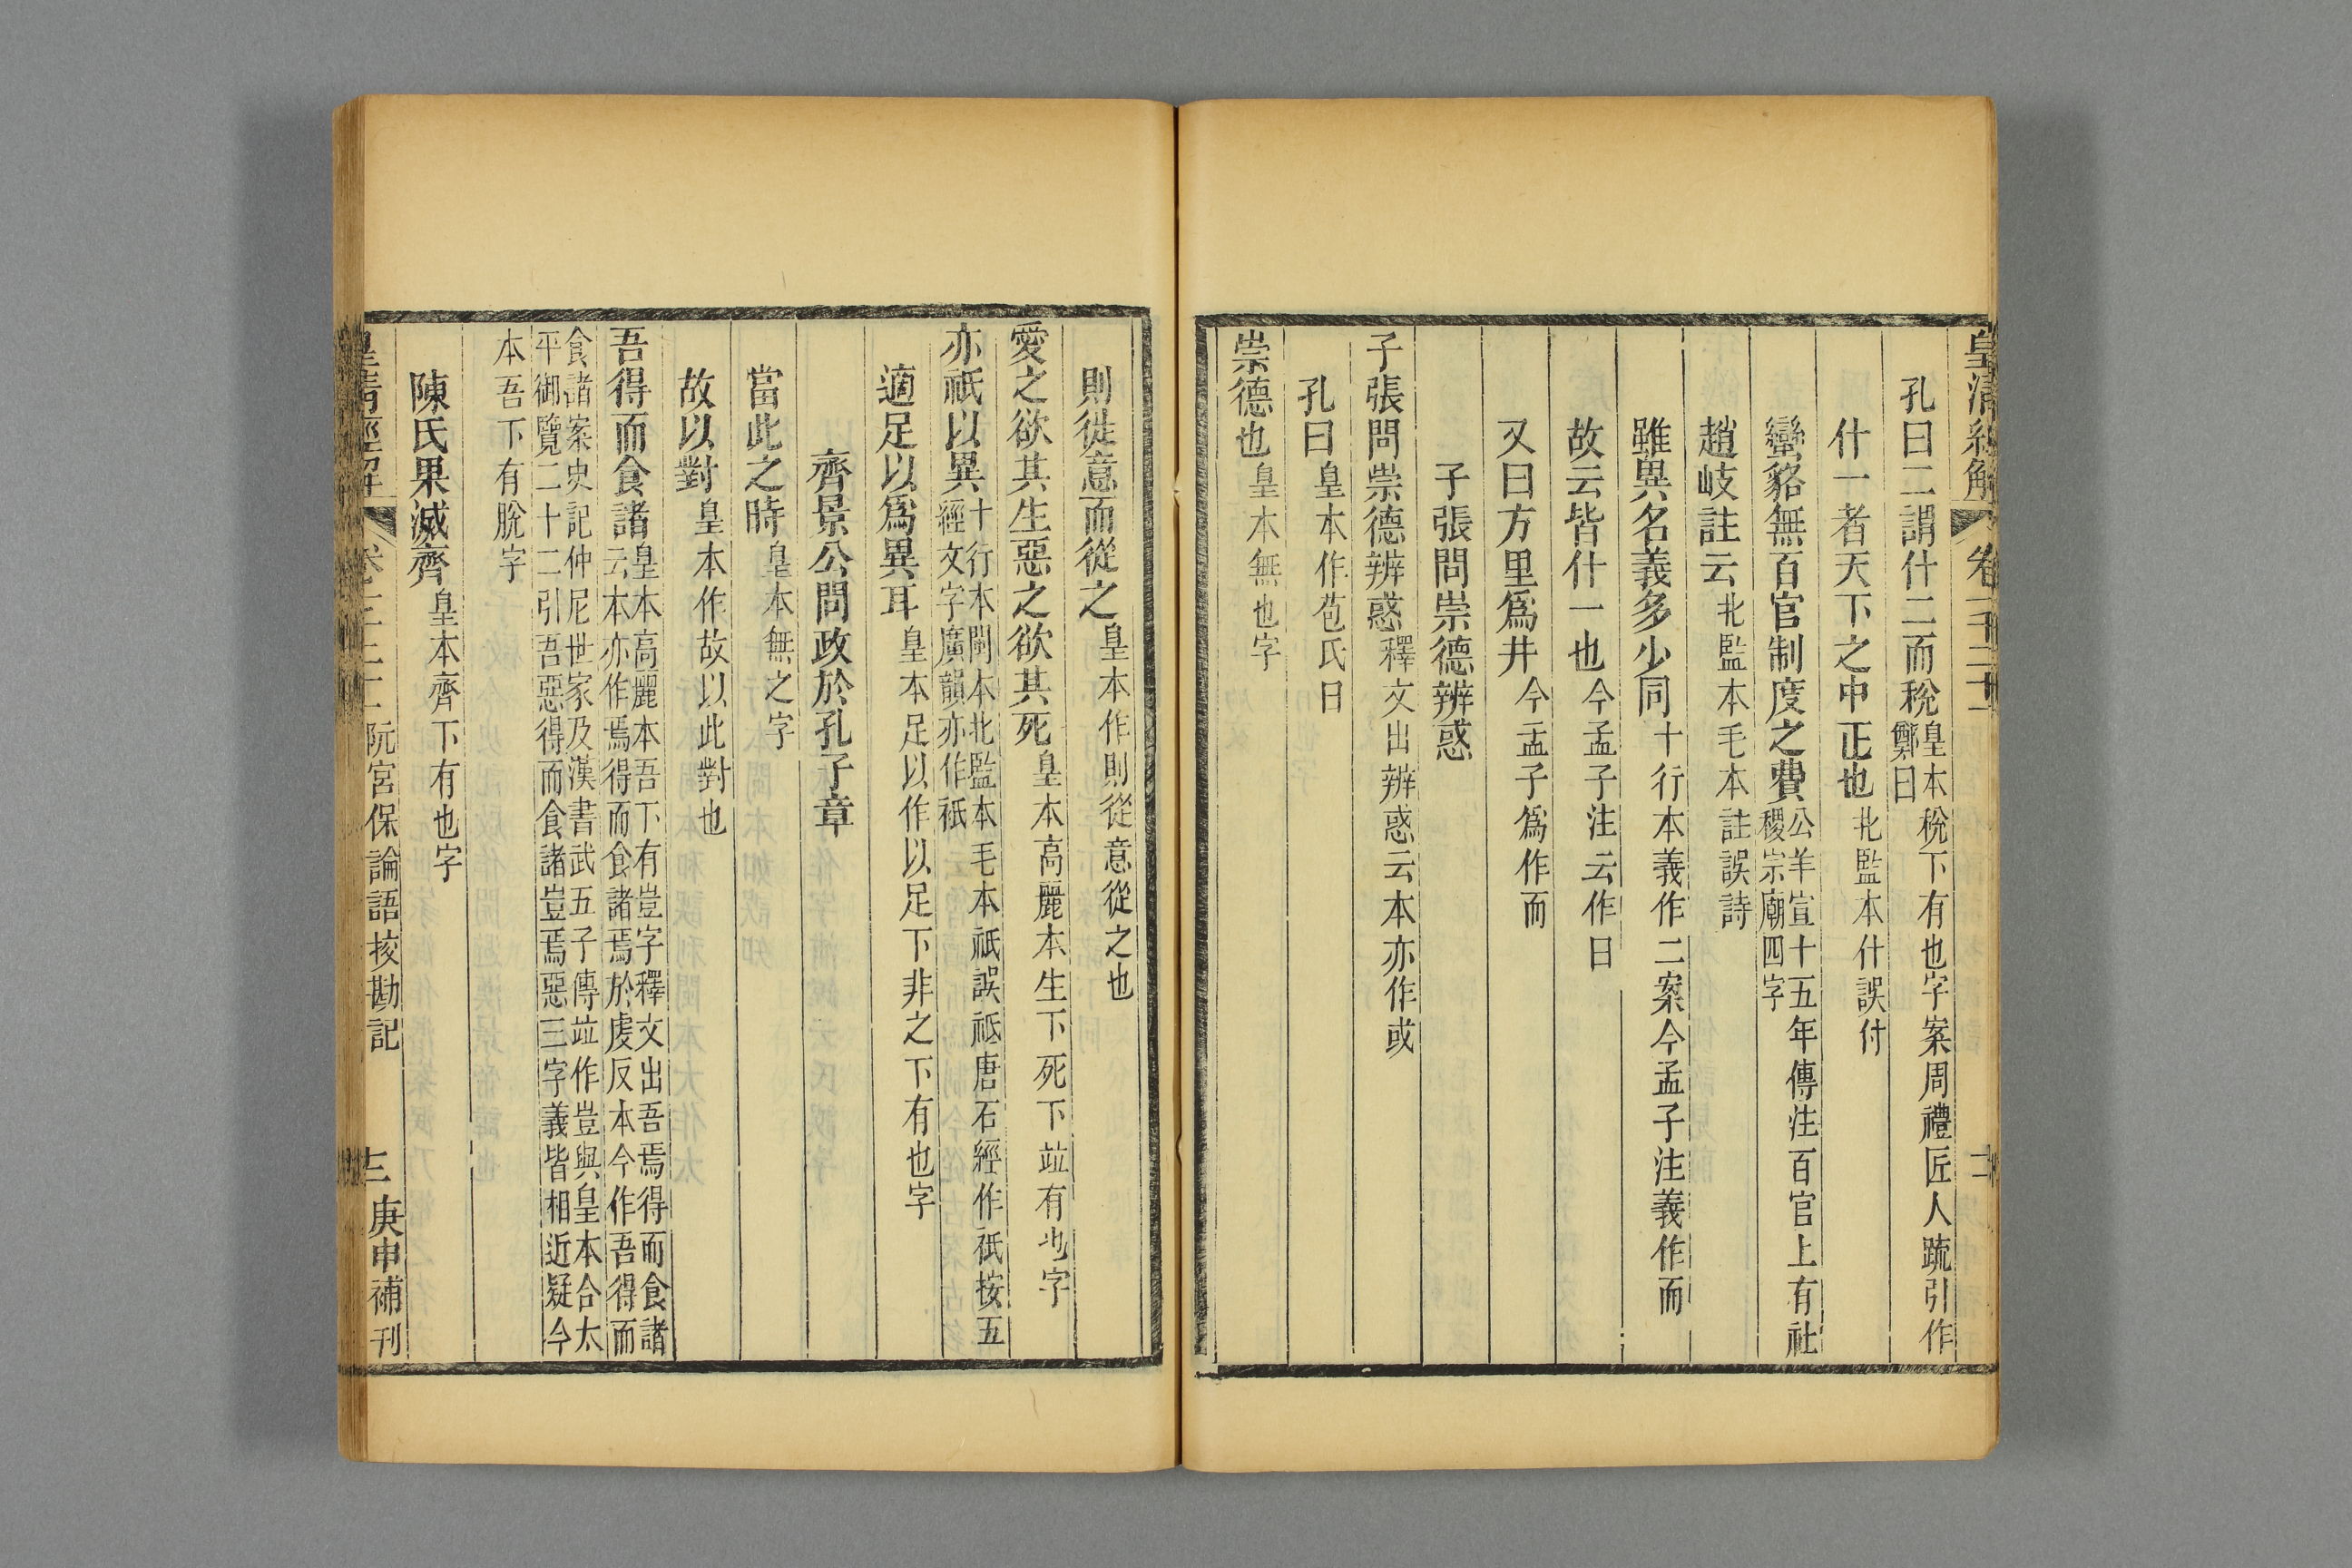 皇清經解 卷一千二十一
孔曰二謂什二而稅皇本稅下有也字案周禮匠人疏引作
鄭曰
什一者天下之中正也北監本什誤付
蠻貉無百官制度之費公羊宣十五年傳注百官上有社
稷宗廟四字
趙岐註云北監本毛本註誤詩
雖異名義多少同十行本義作二案今孟子注義作而
故云皆什一也今孟子注云作曰
又曰方里為井今孟子為作而
子張問崇德辨惑
子張問崇德辨惑釋文出辨惑云本亦作或
孔曰皇本作苞氏曰
崇德也皇本無也字
則徙意而從之皇本作則從意從之也
愛之欲其生惡之欲其死皇本高麗本生下死下竝有也字
亦祇以異十行本閩本北監本毛本祇誤祗唐石經作衹按五
經文字廣韻亦作衹
適足以為異耳皇本足以作以足下非之下有也字
齊景公問政於孔子章
當此之時皇本無之字
故以對皇本作故以此對也
吾得而食諸皇本高麗本吾下有豈字釋文出吾焉得而食諸
云本亦作焉得而食諸焉於虔反本今作吾得而
食諸案史記仲尼世家及漢書武五子傳竝作豈與皇本合太
平御覽二十二引吾惡得而食諸豈焉惡三字義皆相近疑今
本吾下有脫字
陳氏果滅齊皇本齊下有也字
皇清經解 阮宮保論語挍勘記 庚申補刊